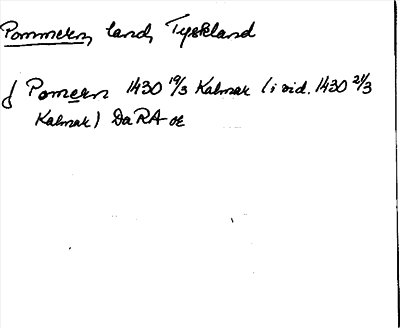 Pommern, land, Tyskland
Pomern 1430 19/3 Kalmar (i vid. 1430 21/3
Kalmar) DaRA oe